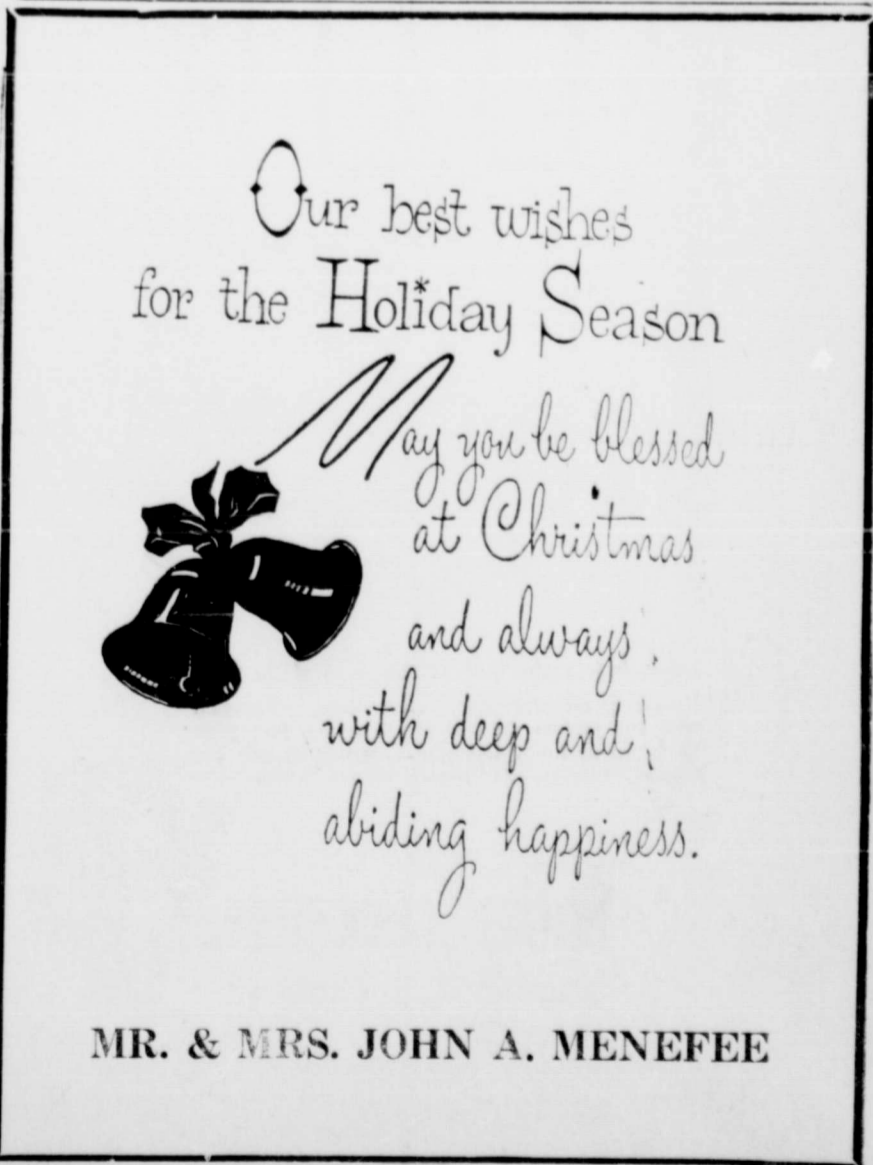 Our best wishes
for the Holiday Season
May you be blessed
at Christmas
and always,
with deep and
abiding happiness.
MR. & MRS. JOHN A. MENEFEE